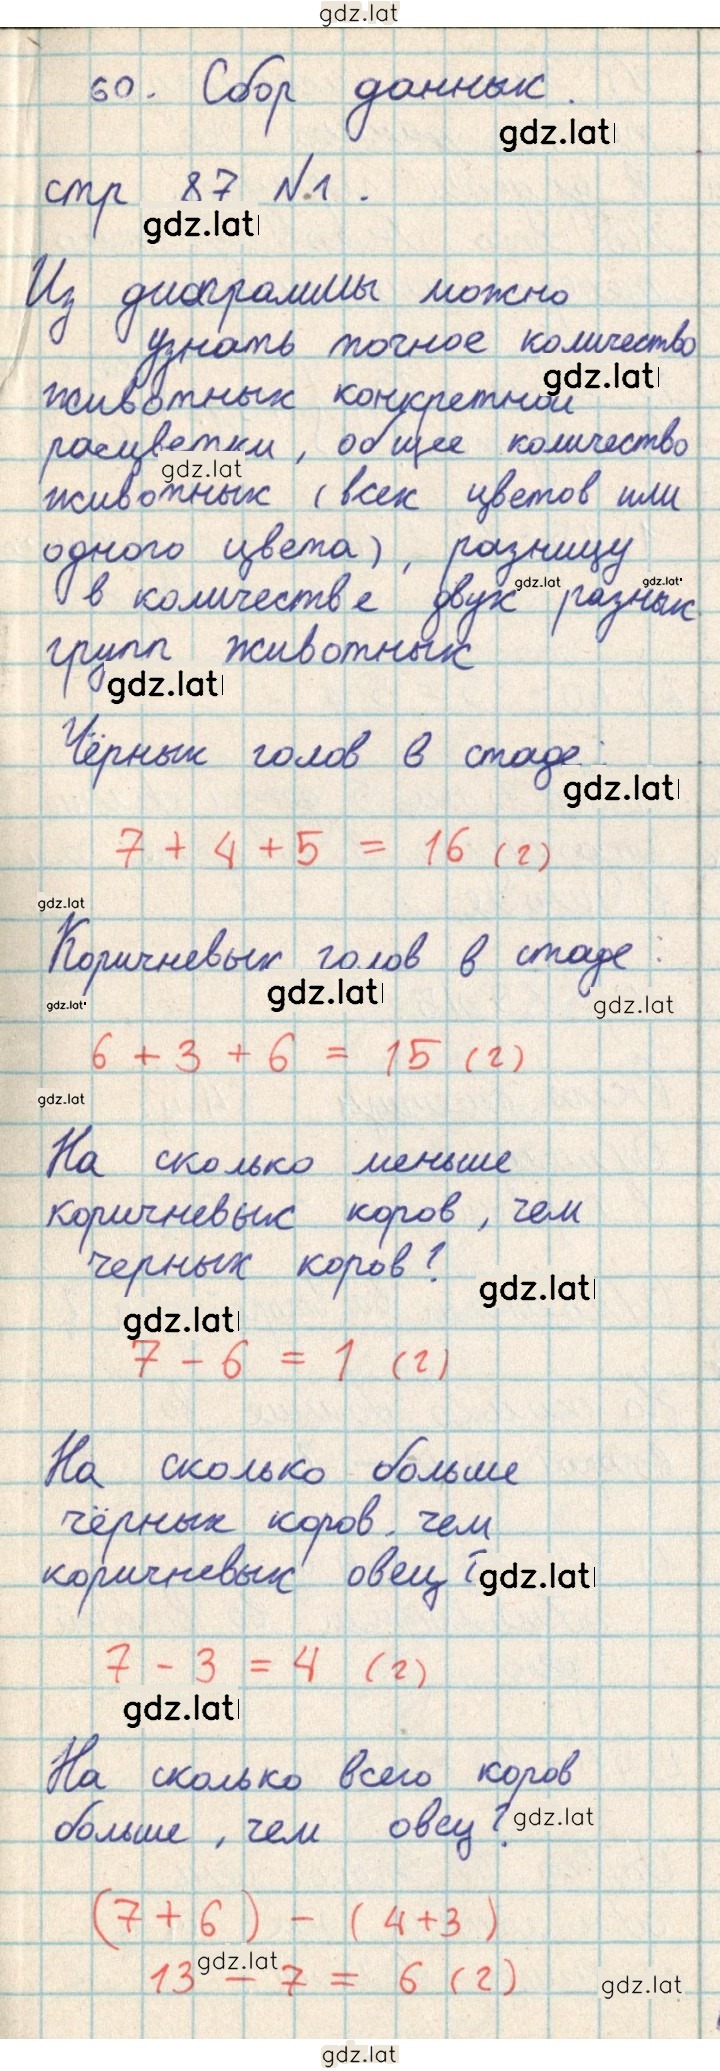 gdz.lat
60. Сбор данных.
gdz.lat
стр 87 №1.
gdz.lat
Из диаграммы можно
узнать точное количество
gdz.lat
животных конкретной
расцветки, общее количество
gdz.lat
животных (всех цветов или
одного цвета), разницу
gdz.lat
gdz.lat
в количестве двух разных
групп животных
gdz.lat
Чёрных голов в стаде:
gdz.lat
7 + 4 + 5 = 16 (г)
gdz.lat
Коричневых голов в стаде:
gdz.lat
gdz.lat
gdz.lat
6 + 3 + 6 = 15 (г)
gdz.lat
На сколько меньше
коричневых коров, чем
черных коров?
gdz.lat
gdz.lat
7 - 6 = 1 (г)
На сколько больше
чёрных коров, чем
коричневых овец?
gdz.lat
7 - 3 = 4 (г)
gdz.lat
На сколько всего коров
больше, чем овец?
gdz.lat
(7 + 6) - (4+3)
gdz.lat
13 - 7 = 6 (г)
gdz.lat
gdz.lat